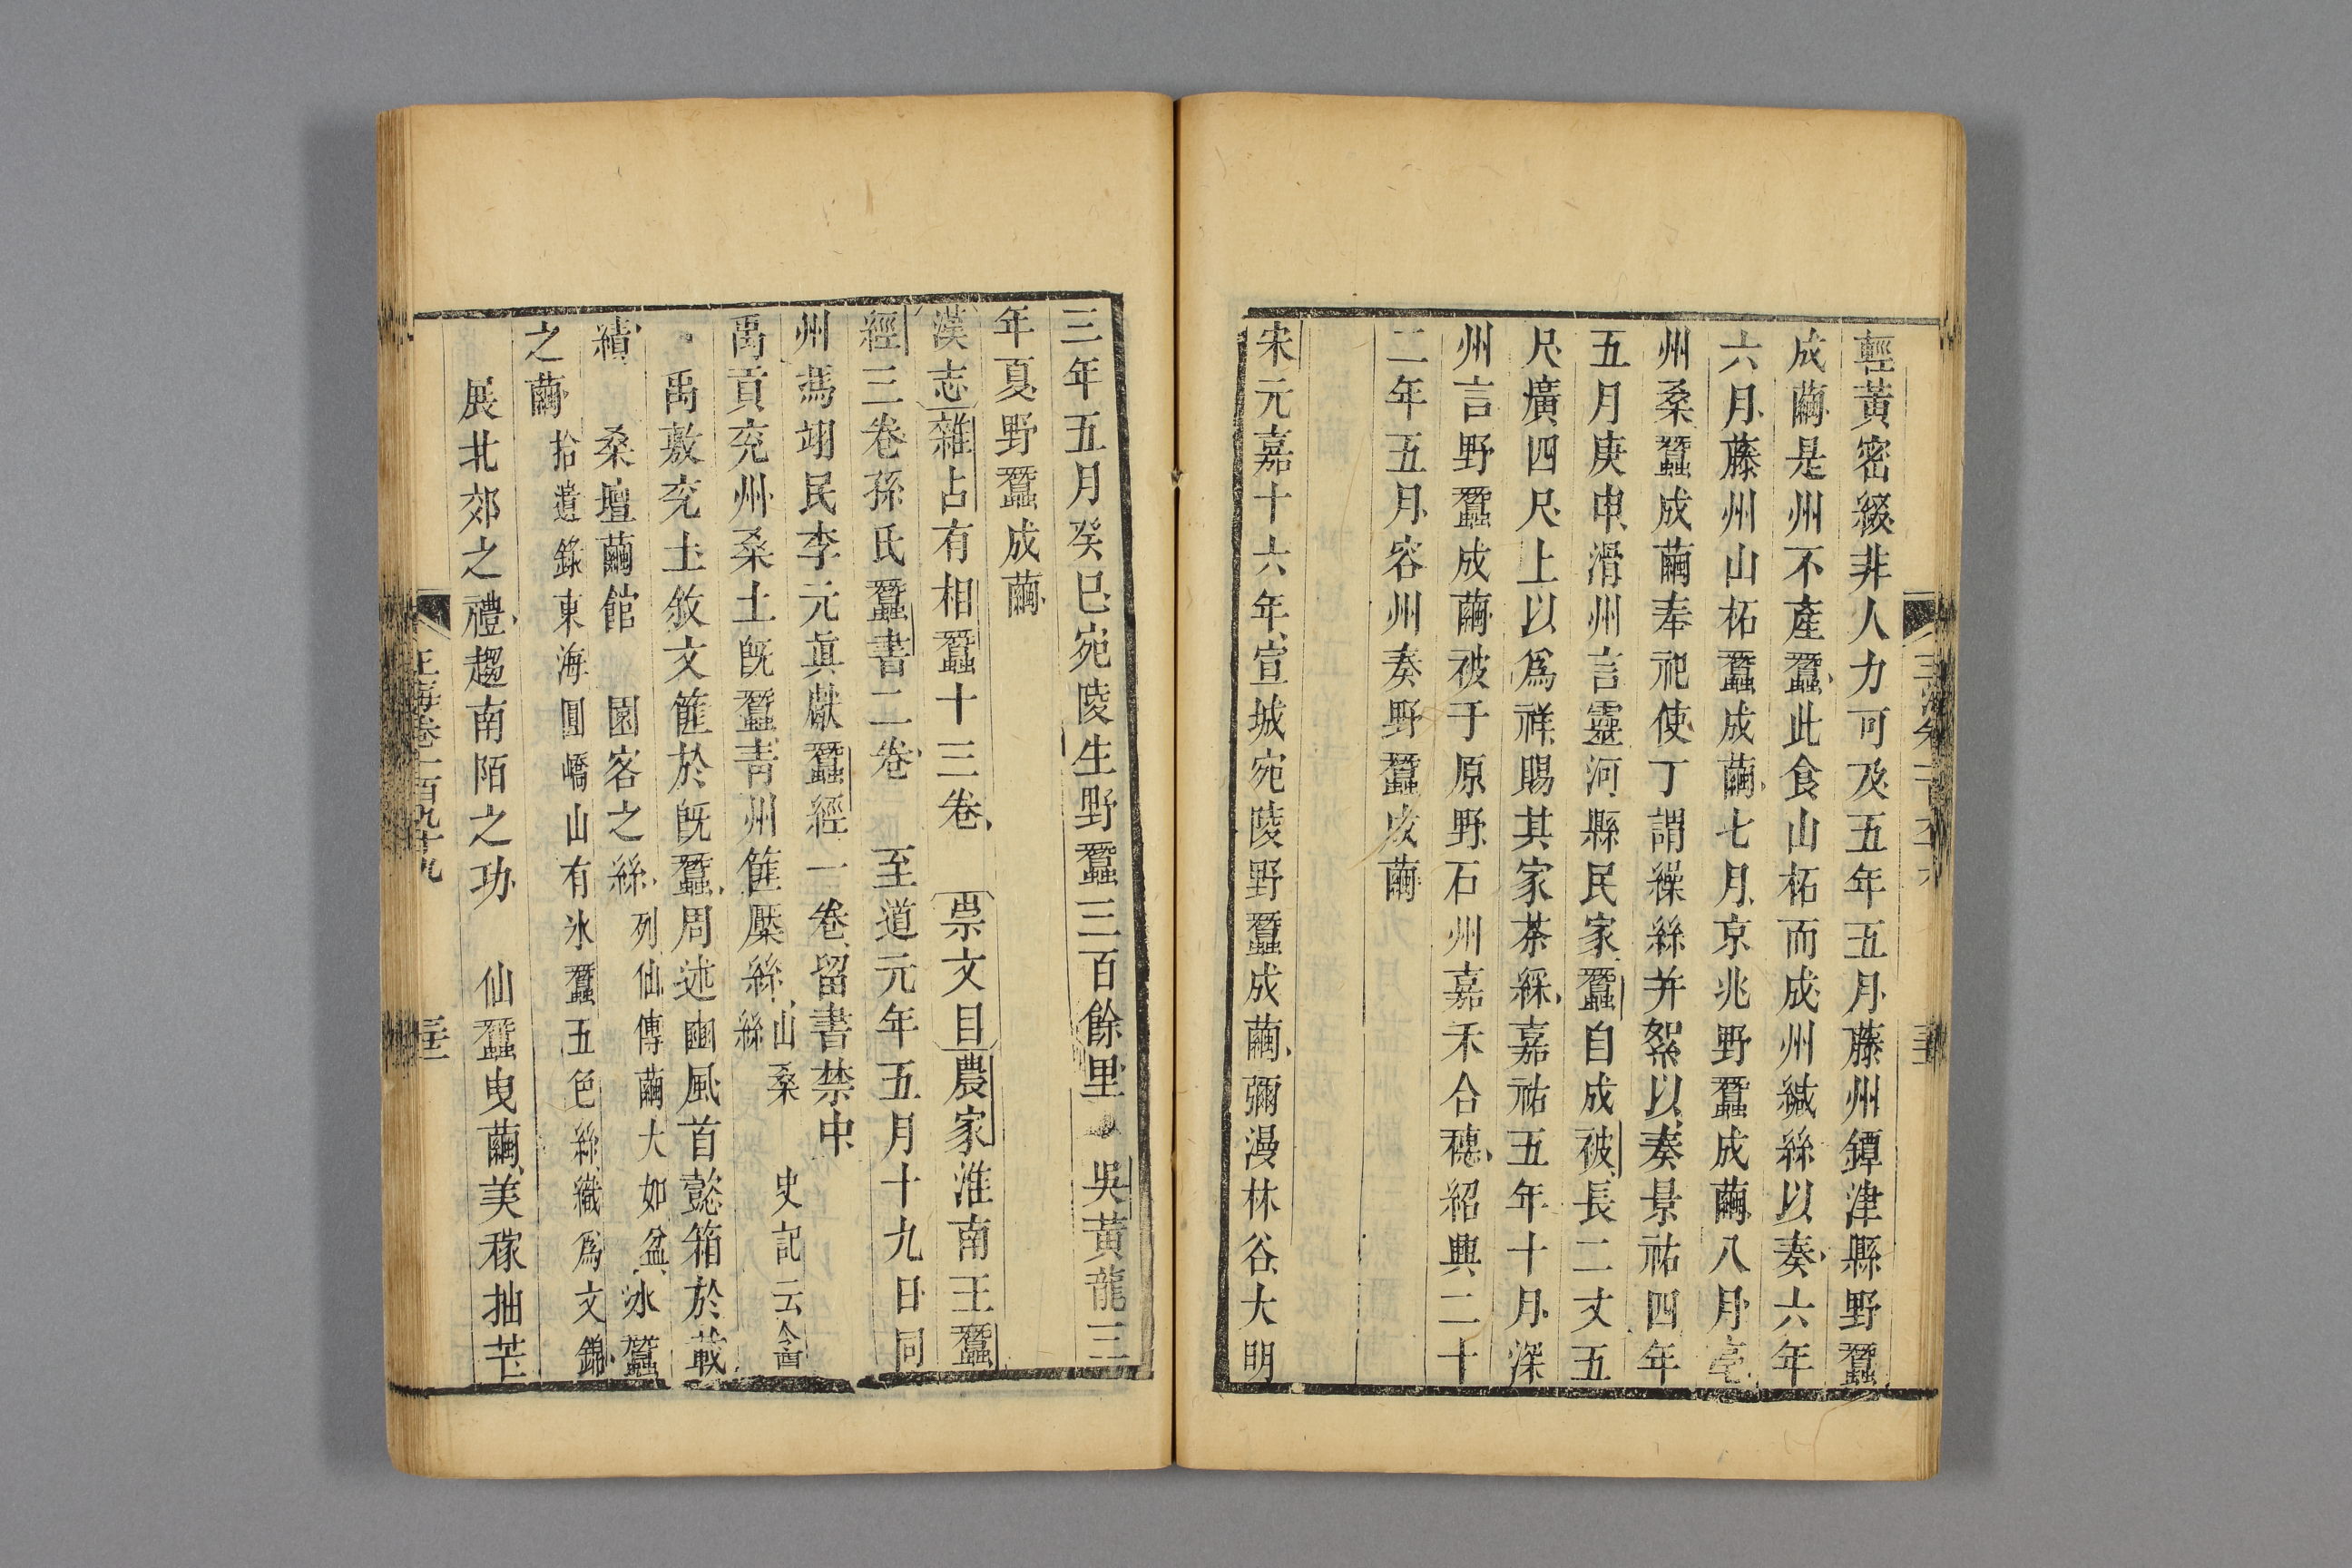 輕黃密綴非人力可及五年五月藤州鐔津縣野蠶
成繭是州不產蠶此食山柘而成州緘絲以奏六年
六月藤州山柘蠶成繭七月京兆野蠶成繭八月亳
州桑蠶成繭奉祀使丁謂繰絲并絮以奏景祐四年
五月庚申滑州言靈河縣民家蠶自成被長二丈五
尺廣四尺上以爲祥賜其家茶綵嘉祐五年十月深
州言野蠶成繭被于原野石州嘉禾合穗紹興二十
二年五月容州奏野蠶成繭
宋元嘉十六年宣城宛陵野蠶成繭彌漫林谷大明
三年五月癸巳宛陵生野蠶三百餘里 吳黃龍三
年夏野蠶成繭
漢志雜占有相蠶十三卷 崇文目農家淮南王蠶
經三卷孫氏蠶書二卷 至道元年五月十九日同
州馮翊民李元眞獻蠶經一卷留書禁中
禹貢兖州桑土旣蠶青州篚檿絲山桑絲 史記云酓
禹敷兖土敘文篚於旣蠶周述豳風首懿箱於載
績 桑壇繭館 園客之絲列仙傳繭大如盆 冰蠶
之繭拾遺錄東海圓嶠山有冰蠶五色絲織爲文錦
展北郊之禮趨南陌之功 仙蠶曳繭美稼抽芒
玉海卷一百九十九